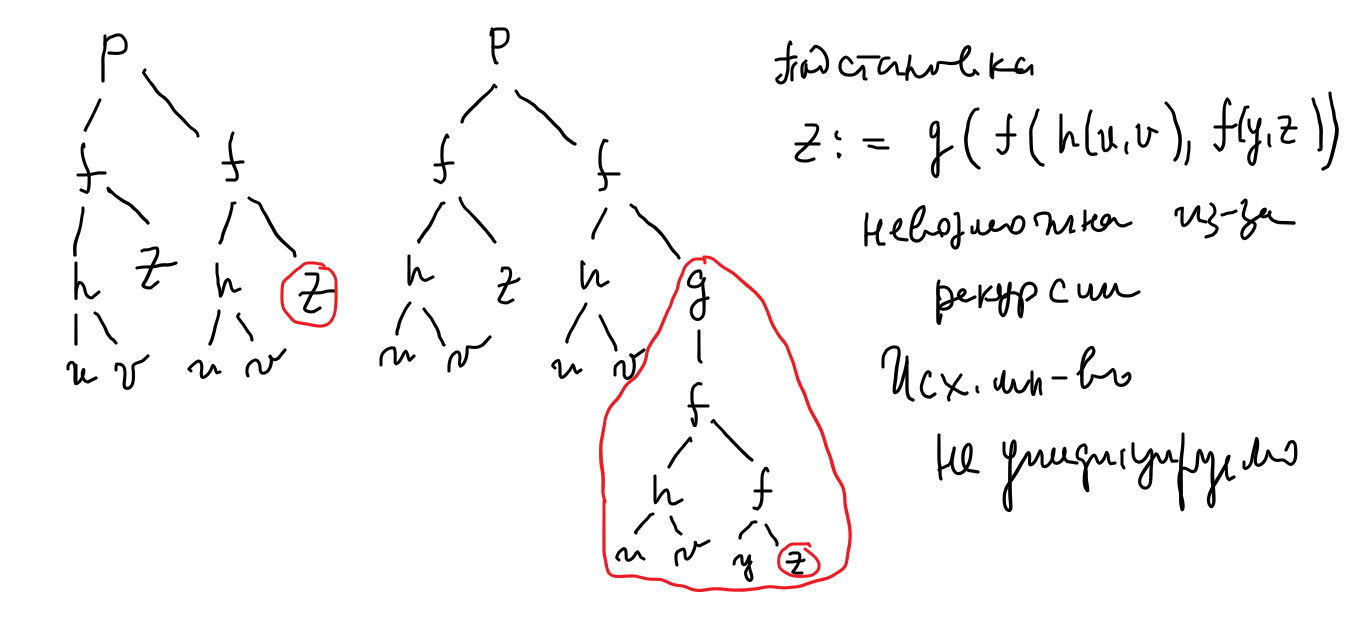 P P
f f f f
h z h z h z h g
u v u v u v u v
f
h f
u v y z
подстановка
z := g(f(h(u,v), f(y,z))
невозможна из-за
рекурсии
Исх. мн-во
не унифицируемо